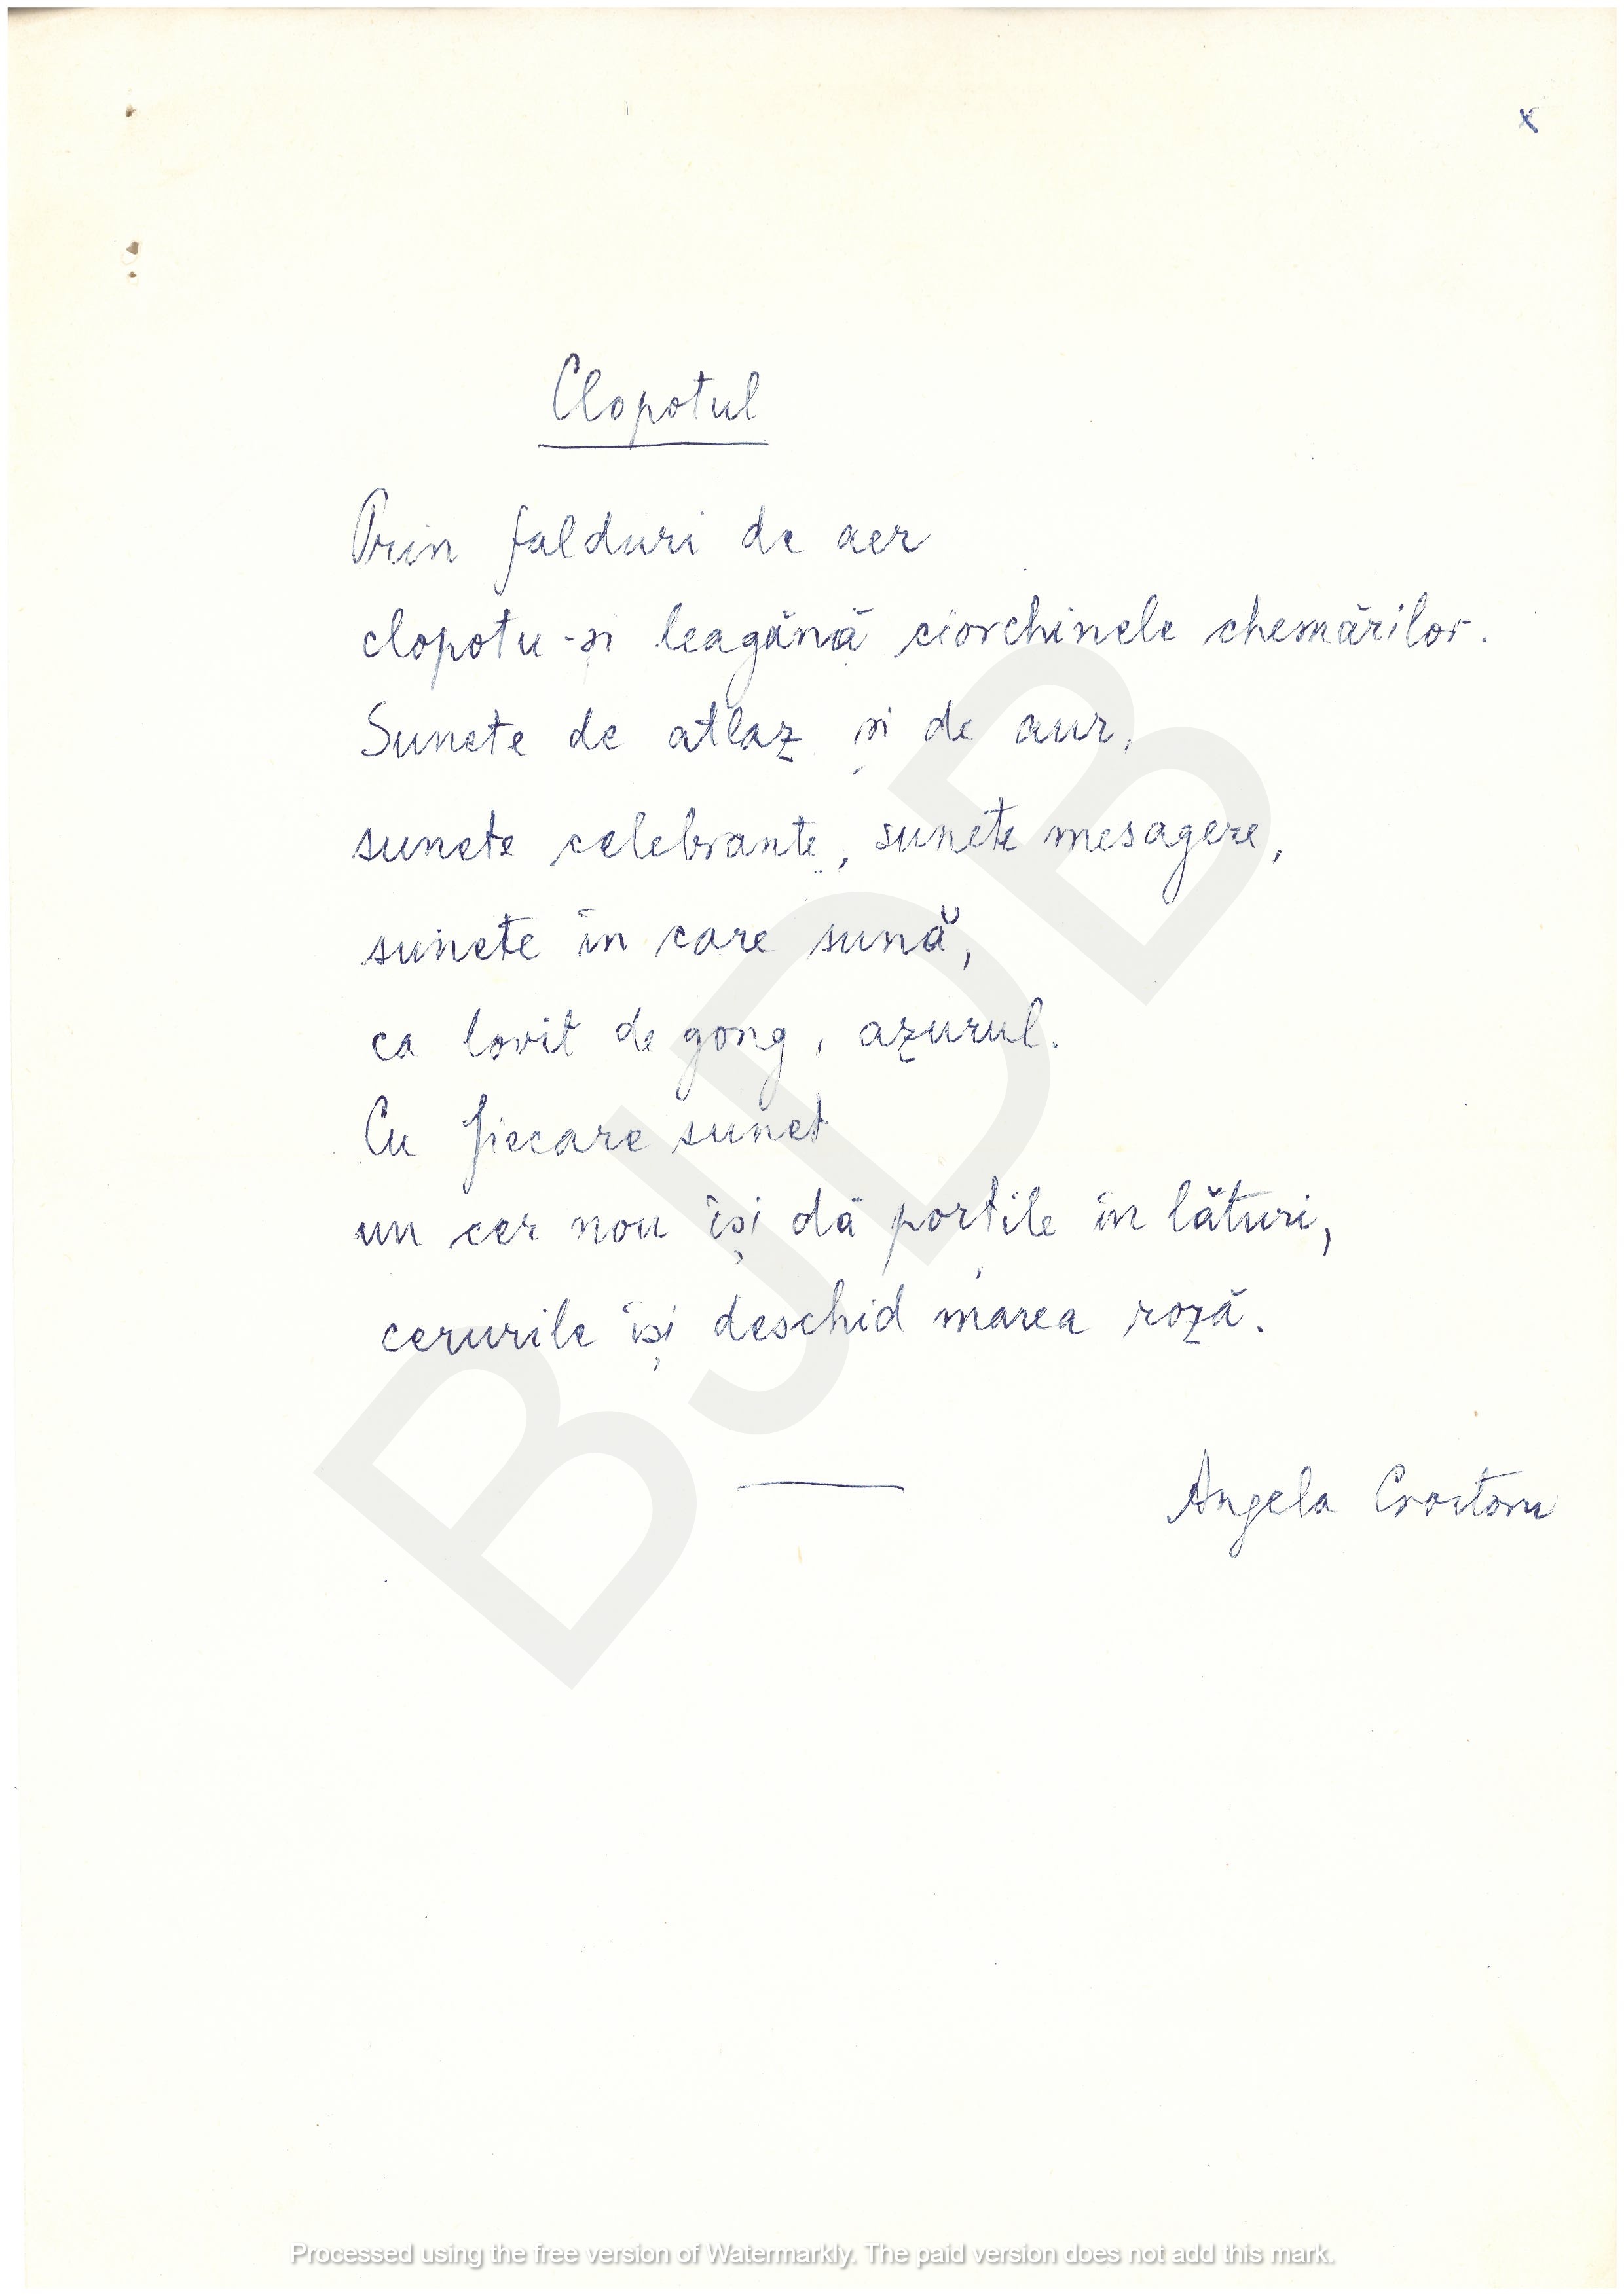 x
Clopotul
Prin falduri de aer
clopotu-și leagănă ciorchinele chemărilor.
Sunete de atlaz și de aur,
sunete celebrante, sunete mesagere,
sunete în care sună,
ca lovit de gong, azurul.
Cu fiecare sunet
un cer nou își dă porțile în lături,
cerurile își deschid marea roză.
Angela Croitoru
BJDB
Processed using the free version of Watermarkly. The paid version does not add this mark.